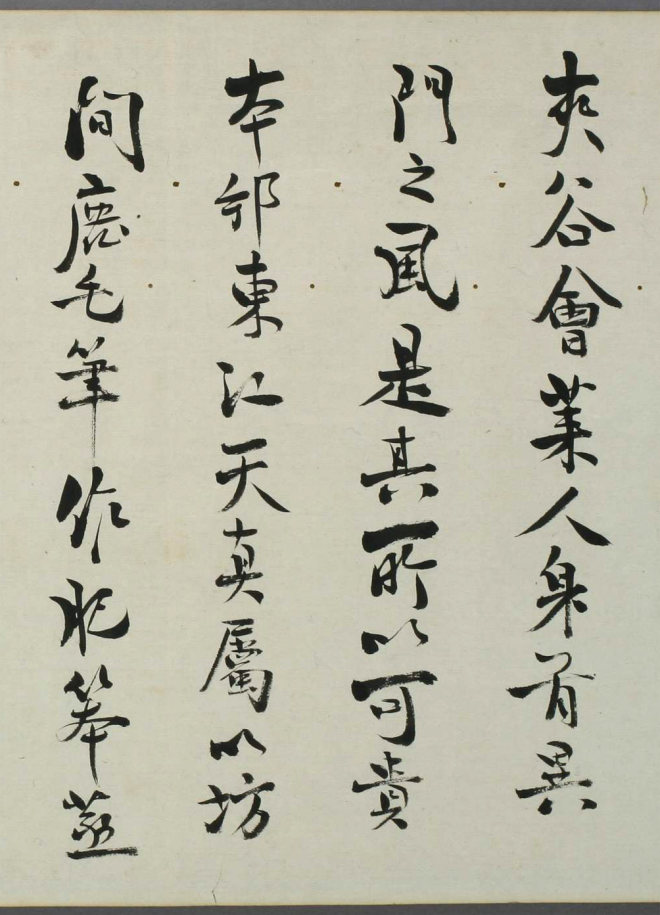 夾谷會萊人身首異
門之風是其所以可貴
本邦東江天真屬以坊
間鹿毛筆作肥笨